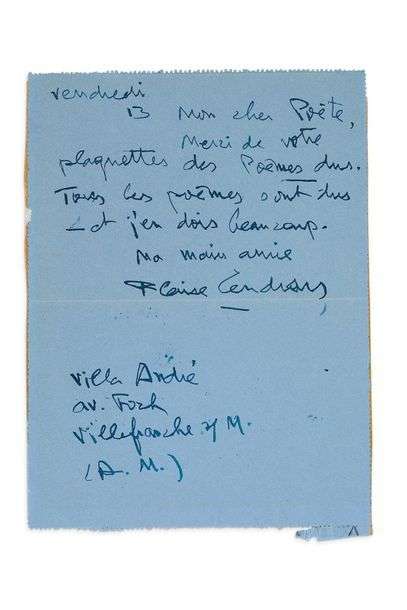 vendredi
13 Mon cher Poëte,
Merci de votre
plaquettes des Poëmes dus.
Tous les poëmes sont dus
et j'en dois beaucoup.
Ma main amie
Blaise Cendrars
Villa André
av. Foch
Villefranche s/ M.
(A. M.)